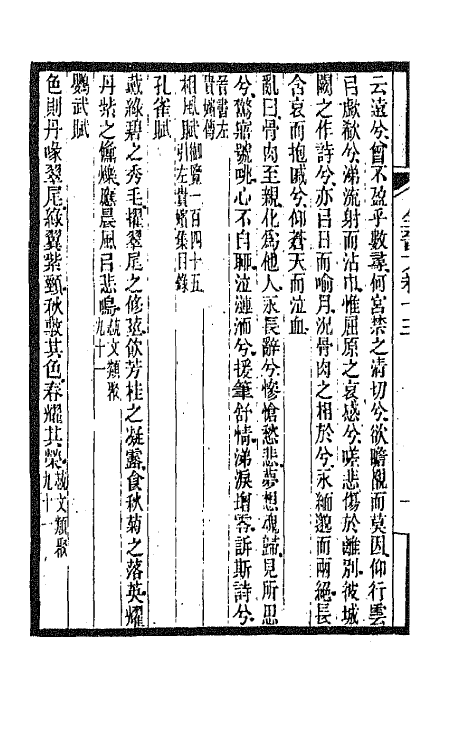 云遠兮曾不盈乎數尋何宮禁之清切兮欲瞻覩而莫因仰行雲
㠯歔欷兮涕流射而沾巾惟屈原之哀感兮嗟悲傷於離別彼城
闕之作詩兮亦㠯日而喻月況骨肉之相於兮永緬邈而兩絕長
含哀而抱戚兮仰蒼天而泣血
亂曰骨肉至親化爲他人永長辭兮慘愴愁悲夢想魂歸見所思
兮驚寤號咷心不自聊泣漣洏兮援筆舒情涕淚增零訴斯詩兮
晉書左
貴嬪傳
相風賦御覽一百四十五
引左貴嬪集目錄
孔雀賦
戴綠碧之秀毛擢翠尾之修莖飲芳桂之凝露食秋菊之落英耀
丹紫之儵爍應晨風㠯悲鳴藝文類聚
九十一
鸚武賦
色則丹喙翠尾綠翼紫頸秋敷其色春耀其榮藝文類聚
九十一